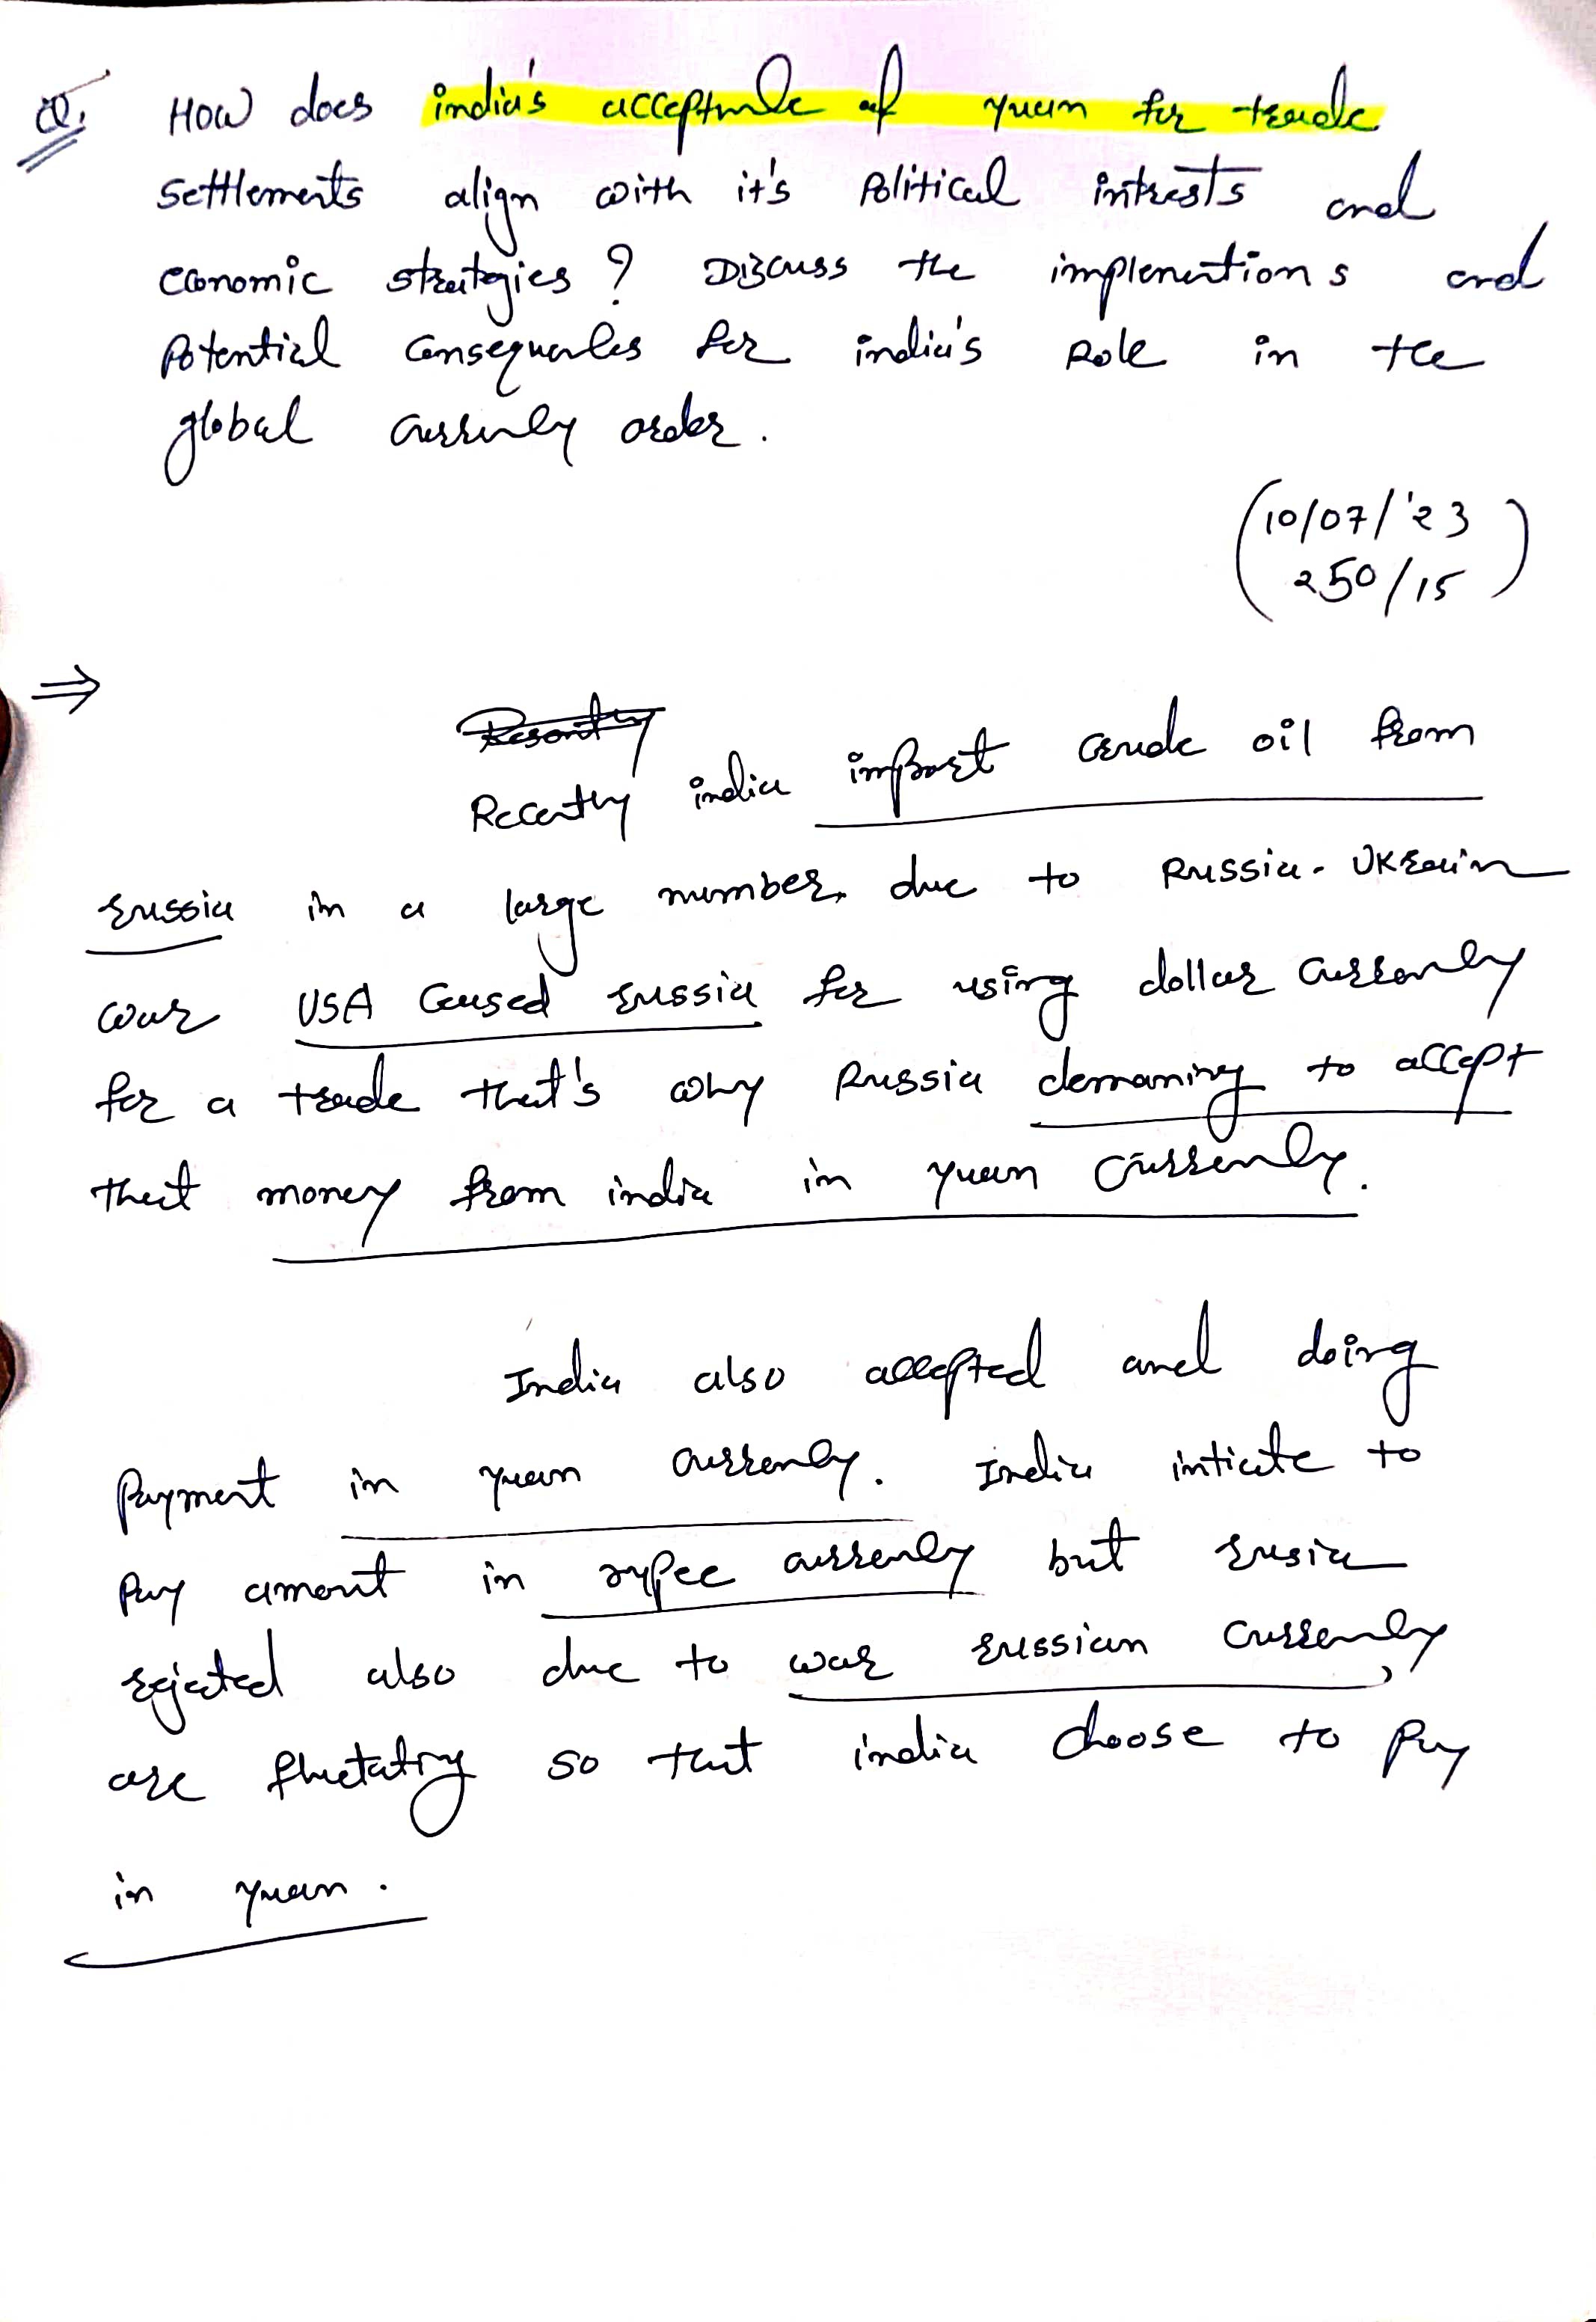 Q. How does india's acceptance of yuan for trade
settlements align with it's Political intrests and
economic strategies ? Discuss the implementions and
Potential consequences for india's Role in the
global currency order.
(10/07/'23
250/15)
⇒
Recently india import crude oil from
russia in a large number due to Russia-Ukrain
war USA Caused russia for using dollar currency
for a trade that's why Russia demaning to accept
that money from india in yuan currency.
India also accepted and doing
Payment in yuan currency. India inticate to
Pay amont in rupee currency but rusia
rejected also due to war russian currency,
are fluctatry so that india choose to Pay
in yuan.